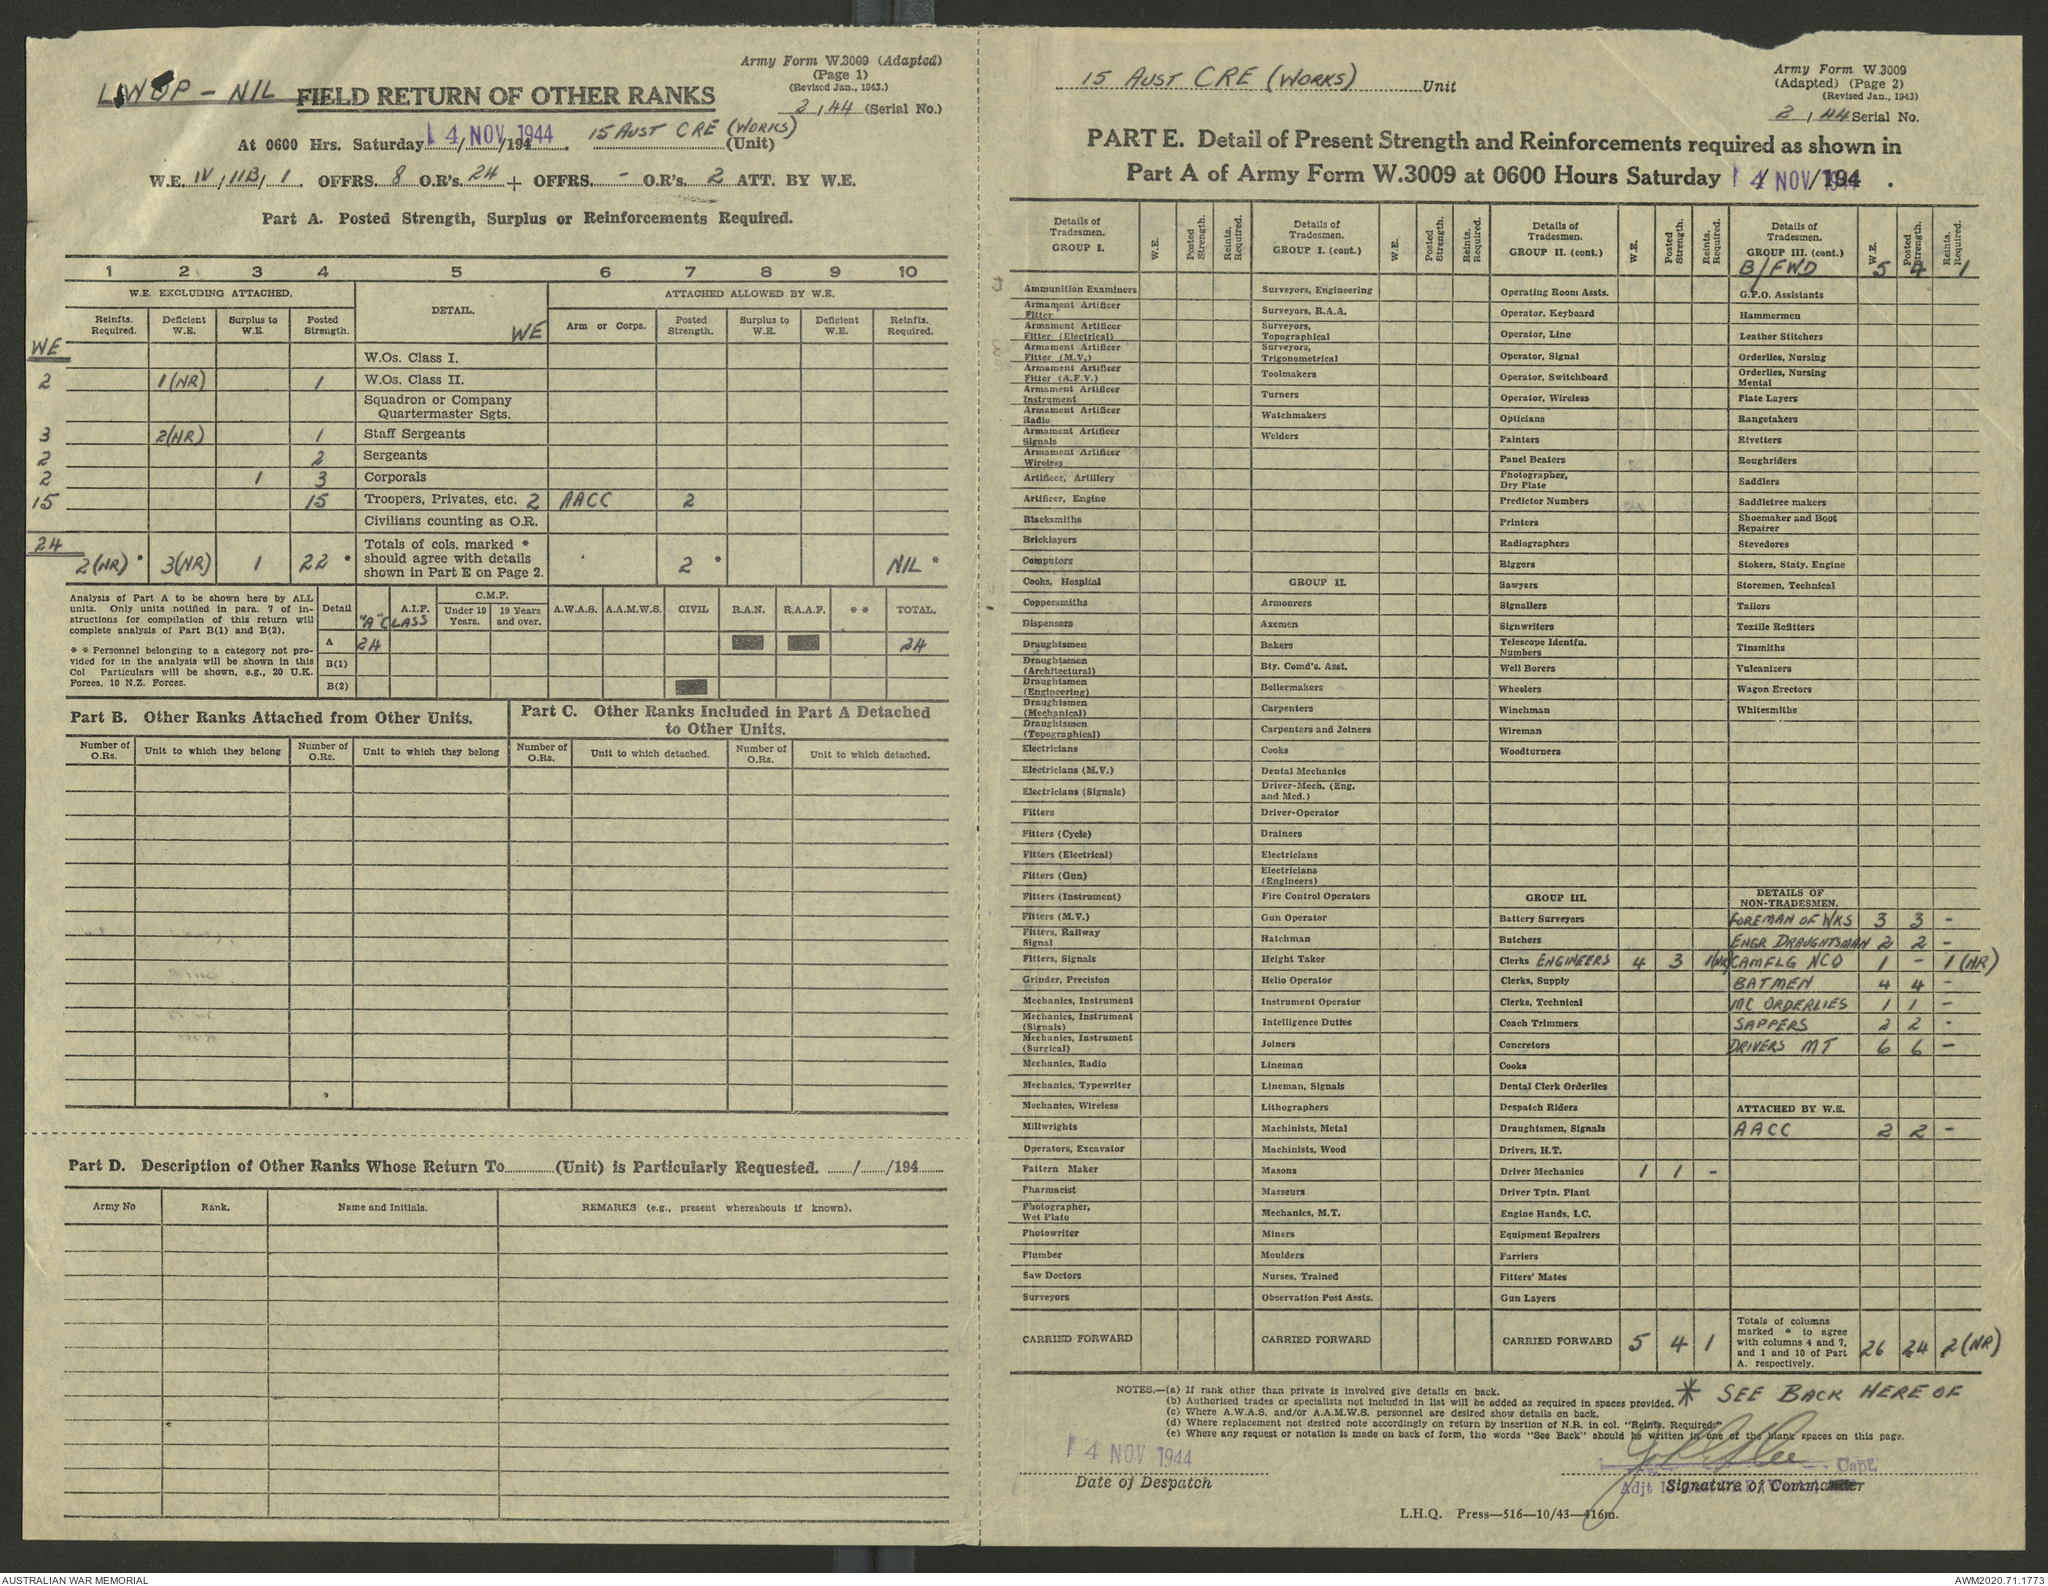 LWOP - NIL
Army Form W.3009 (Adapted)
(Page 1)
(Revised Jan., 1943.)
FIELD RETURN OF OTHER RANKS
2/44 (Serial No.)
At 0600 Hrs. Saturday 14 NOV 1944 /194 . 15 AUST CRE (WORKS) (Unit)
W.E. IV / IIB / 1 . OFFRS. 8 O.R's. 24 + OFFRS. - O.R's. 2 ATT. BY W.E.
Part A. Posted Strength, Surplus or Reinforcements Required.
1 2 3 4 5 6 7 8 9 10
W.E. EXCLUDING ATTACHED. DETAIL. ATTACHED ALLOWED BY W.E.
Reinfts. Required. Deficient W.E. Surplus to W.E. Posted Strength. WE Arm or Corps. Posted Strength. Surplus to W.E. Deficient W.E. Reinfts. Required.
WE
W.Os. Class I.
2 1(NR) 1 W.Os. Class II.
Squadron or Company Quartermaster Sgts.
3 2(NR) 1 Staff Sergeants
2 2 Sergeants
2 1 3 Corporals
15 15 Troopers, Privates, etc. 2 AACC 2
Civilians counting as O.R.
24
2(NR) * 3(NR) 1 22 * Totals of cols. marked * should agree with details shown in Part E on Page 2. 2 * NIL *
Analysis of Part A to be shown here by ALL units. Only units notified in para. 7 of instructions for compilation of this return will complete analysis of Part B(1) and B(2).
* * Personnel belonging to a category not provided for in the analysis will be shown in this Col Particulars will be shown, e.g., 20 U.K. Forces. 10 N.Z. Forces.
Detail "A" CLASS A.I.F. C.M.F. Under 19 Years. 19 Years and over. A.W.A.S. A.A.M.W.S. CIVIL R.A.N. R.A.A.F. * * TOTAL.
A 24 24
B(1)
B(2)
Part B. Other Ranks Attached from Other Units.
Part C. Other Ranks Included in Part A Detached to Other Units.
Number of O.Rs. Unit to which they belong Number of O.Rs. Unit to which they belong Number of O.Rs. Unit to which detached. Number of O.Rs. Unit to which detached.
Part D. Description of Other Ranks Whose Return To (Unit) is Particularly Requested. / /194
Army No Rank. Name and Initials. REMARKS (e.g., present whereabouts if known).
15 AUST CRE (WORKS) Unit
Army Form W.3009
(Adapted) (Page 2)
(Revised Jan., 1943)
2/44 Serial No.
PART E. Detail of Present Strength and Reinforcements required as shown in
Part A of Army Form W.3009 at 0600 Hours Saturday 14 NOV 1944 /194 .
Details of Tradesmen. GROUP I. W.E. Posted Strength. Reints. Required.
Ammunition Examiners
Armament Artificer Fitter
Armament Artificer Fitter (Electrical)
Armament Artificer Fitter (M.V.)
Armament Artificer Fitter (A.F.V.)
Armament Artificer Instrument
Armament Artificer Radio
Armament Artificer Signals
Armament Artificer Wireless
Artificer, Artillery
Artificer, Engine
Blacksmiths
Bricklayers
Computors
Cooks, Hospital
Coppersmiths
Dispensers
Draughtsmen
Draughtsmen (Architectural)
Draughtsmen (Engineering)
Draughtsmen (Mechanical)
Draughtsmen (Topographical)
Electricians
Electricians (M.V.)
Electricians (Signals)
Fitters
Fitters (Cycle)
Fitters (Electrical)
Fitters (Gun)
Fitters (Instrument)
Fitters (M.V.)
Fitters, Railway Signal
Fitters, Signals
Grinder, Precision
Mechanics, Instrument
Mechanics, Instrument (Signals)
Mechanics, Instrument (Surgical)
Mechanics, Radio
Mechanics, Typewriter
Mechanics, Wireless
Millwrights
Operators, Excavator
Pattern Maker
Pharmacist
Photographer, Wet Plate
Photowriter
Plumber
Saw Doctors
Surveyors
CARRIED FORWARD
Details of Tradesmen. GROUP I. (cont.) W.E. Posted Strength. Reints. Required.
Surveyors, Engineering
Surveyors, R.A.A.
Surveyors, Topographical
Surveyors, Trigonometrical
Toolmakers
Turners
Watchmakers
Welders
GROUP II.
Armourers
Axemen
Bakers
Bty. Comd's. Asst.
Boilermakers
Carpenters
Carpenters and Joiners
Cooks
Dental Mechanics
Driver-Mech. (Eng. and Med.)
Driver-Operator
Drainers
Electricians
Electricians (Engineers)
Fire Control Operators
Gun Operator
Hatchman
Height Taker
Helio Operator
Instrument Operator
Intelligence Duties
Joiners
Lineman
Lineman, Signals
Lithographers
Machinists, Metal
Machinists, Wood
Masons
Masseurs
Mechanics, M.T.
Miners
Moulders
Nurses, Trained
Observation Post Assts.
CARRIED FORWARD
Details of Tradesmen. GROUP II. (cont.) W.E. Posted Strength. Reints. Required.
Operating Room Assts.
Operator, Keyboard
Operator, Line
Operator, Signal
Operator, Switchboard
Operator, Wireless
Opticians
Painters
Panel Beaters
Photographer, Dry Plate
Predictor Numbers
Printers
Radiographers
Riggers
Sawyers
Signallers
Signwriters
Telescope Identfn. Numbers
Well Borers
Wheelers
Winchman
Wireman
Woodturners
GROUP III.
Battery Surveyors
Butchers
Clerks ENGINEERS 4 3 1(NR)
Clerks, Supply
Clerks, Technical
Coach Trimmers
Concretors
Cooks
Dental Clerk Orderlies
Despatch Riders
Draughtsmen, Signals
Drivers, H.T.
Driver Mechanics 1 1 -
Driver Tptn. Plant
Engine Hands, I.C.
Equipment Repairers
Farriers
Fitters' Mates
Gun Layers
CARRIED FORWARD 5 4 1
Details of Tradesmen. GROUP III. (cont.) W.E. Posted Strength. Reints. Required.
B/FWD 5 4 1
G.P.O. Assistants
Hammermen
Leather Stitchers
Orderlies, Nursing
Orderlies, Nursing Mental
Plate Layers
Rangetakers
Rivetters
Roughriders
Saddlers
Saddletree makers
Shoemaker and Boot Repairer
Stevedores
Stokers, Staty. Engine
Storemen, Technical
Tailors
Textile Refitters
Tinsmiths
Vulcanizers
Wagon Erectors
Whitesmiths
DETAILS OF NON-TRADESMEN.
FOREMAN OF WKS 3 3 -
ENGR DRAUGHTSMAN 2 2 -
CAMFLG NCO 1 - 1(NR)
BATMEN 4 4 -
MC ORDERLIES 1 1 -
SAPPERS 2 2 -
DRIVERS MT 6 6 -
ATTACHED BY W.E.
AACC 2 2 -
Totals of columns marked * to agree with columns 4 and 7, and 1 and 10 of Part A. respectively. 26 24 2(NR)
NOTES.—(a) If rank other than private is involved give details on back.
(b) Authorised trades or specialists not included in list will be added as required in spaces provided.
(c) Where A.W.A.S. and/or A.A.M.W.S. personnel are desired show details on back.
(d) Where replacement not desired note accordingly on return by insertion of N.R. in col. "Reints. Required."
(e) Where any request or notation is made on back of form, the words "See Back" should be written in one of the blank spaces on this page.
* SEE BACK HERE OF
14 NOV 1944
Date of Despatch
Capt.
Adjt
Signature of Commander
L.H.Q. Press—516—10/43—416m.
AUSTRALIAN WAR MEMORIAL
AWM2020.71.1773